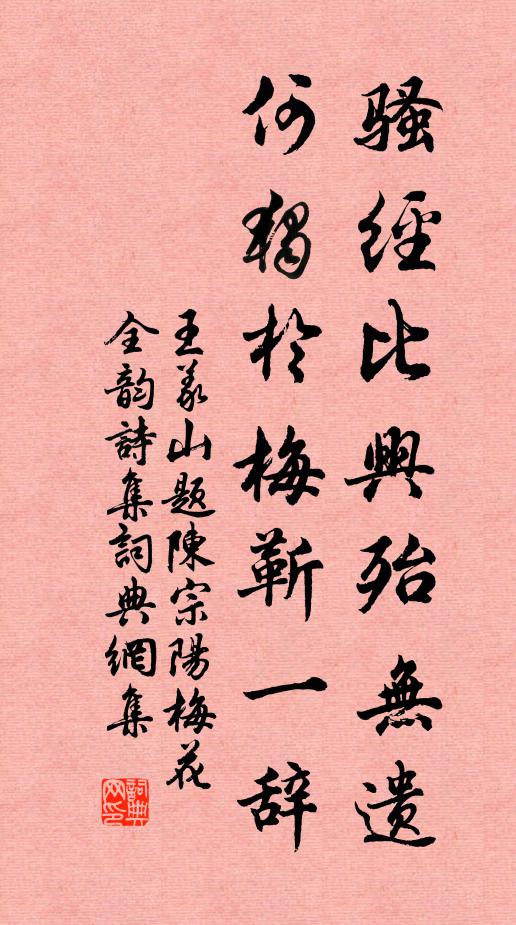 騷經比興殆無遺
何獨於梅蘄一辞
王义山题陳宗陽梅花
全韵詩集詞典網集
詞典網印